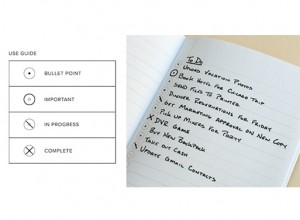 USE GUIDE
BULLET POINT
IMPORTANT
IN PROGRESS
COMPLETE
To Do
Upload Vacation Photos
Book Hotel for Chicago Trip
Send Files to Printer
Dinner Reservations for Friday
Get Marketing Approval on New Copy
Pick up Mixers for Party
DVR Game
Buy New Backpack
Take out Cash
Update Gmail Contacts